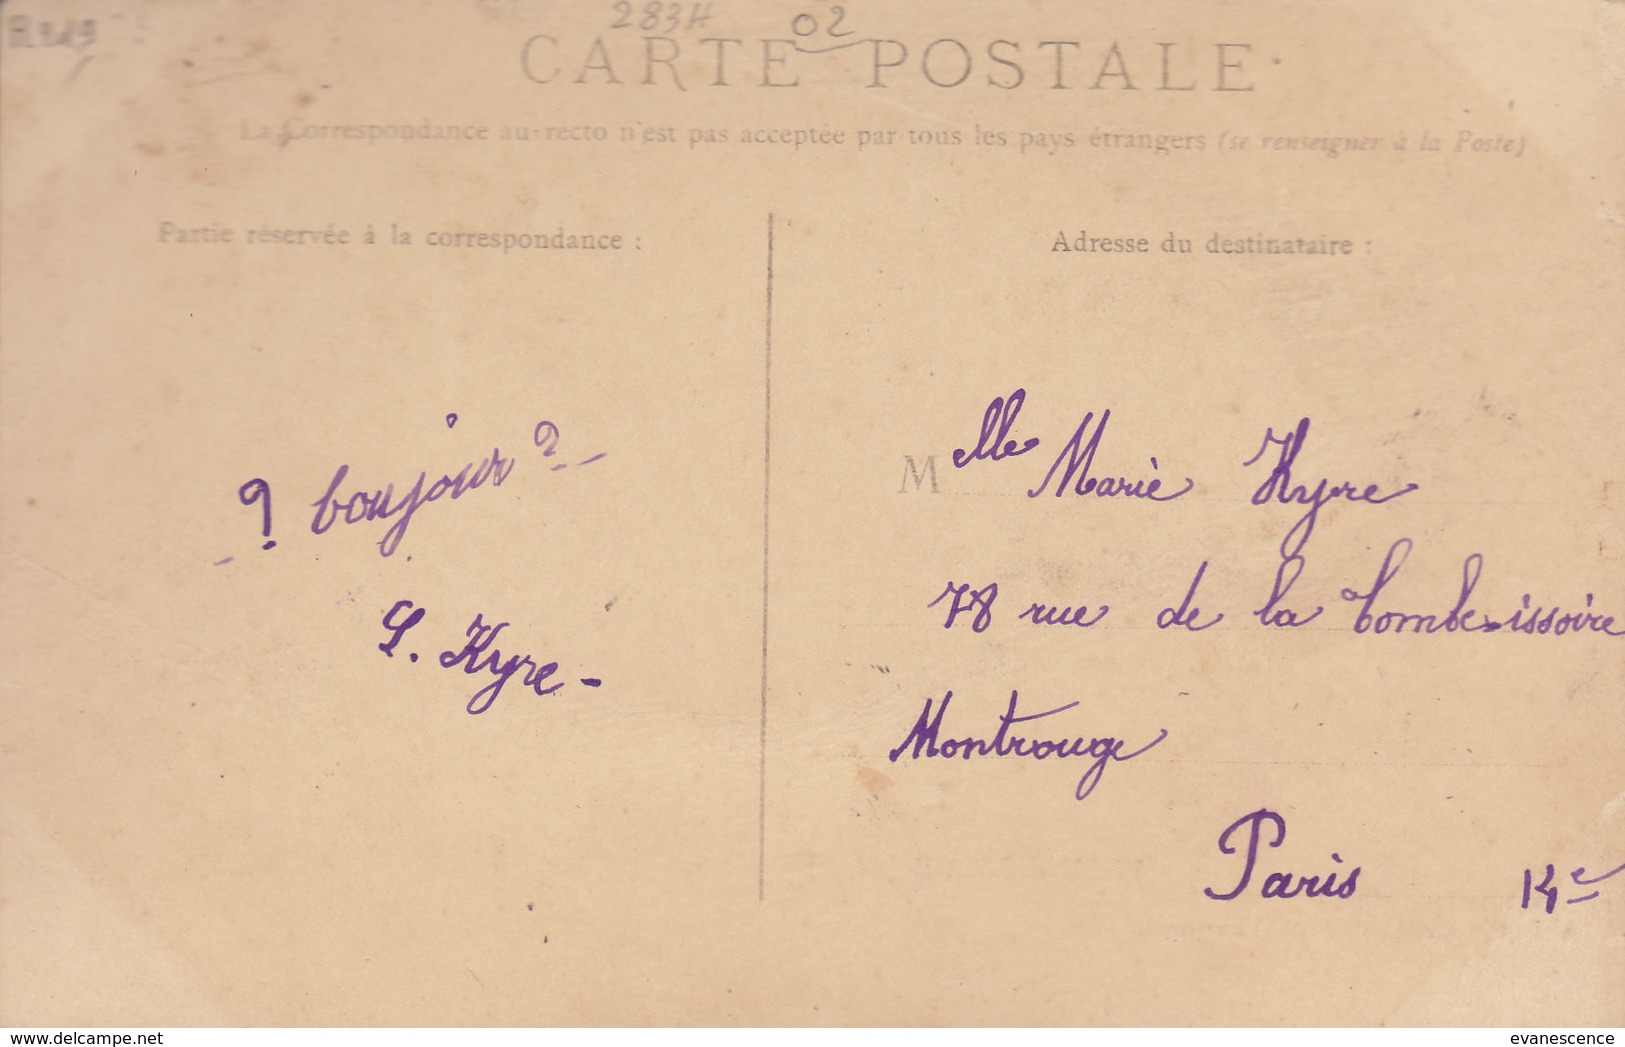 283H 02
CARTE POSTALE
La Correspondance au-recto n'est pas acceptée par tous les pays étrangers (se renseigner à la Poste)
Partie réservée à la correspondance :
? boujour ?
S. Kyre -
Adresse du destinataire :
Melle Marie Kypre
78 rue de la Tombe-issoire
Montrouge
Paris 14e
www.delcampe.net
evanescence